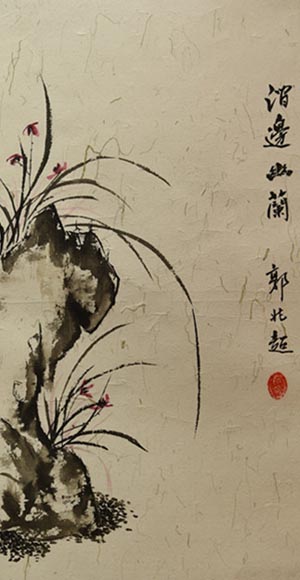 澗邊幽蘭
郭兆超